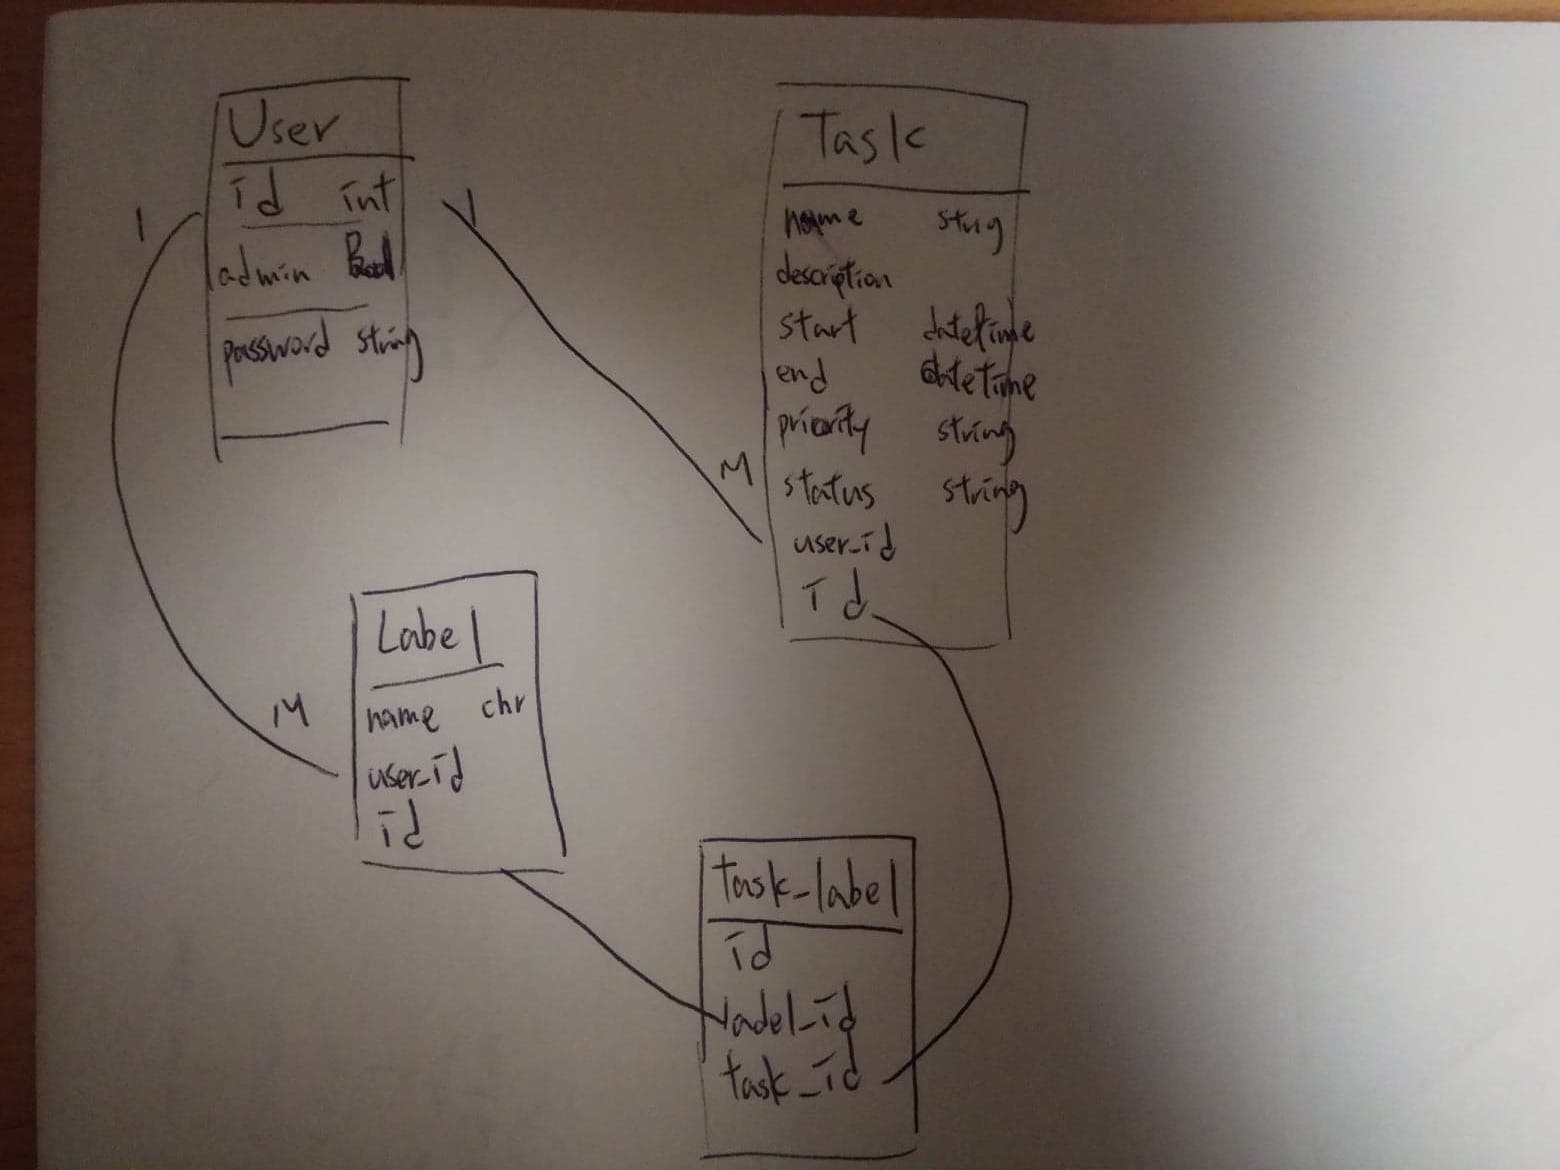 User
id int
admin Bool
password string
1
1
M
M
Task
name strng
description
start datetime
end datetime
priority string
status string
user_id
id
Label
name chr
user_id
id
task_label
id
ladel_id
task_id